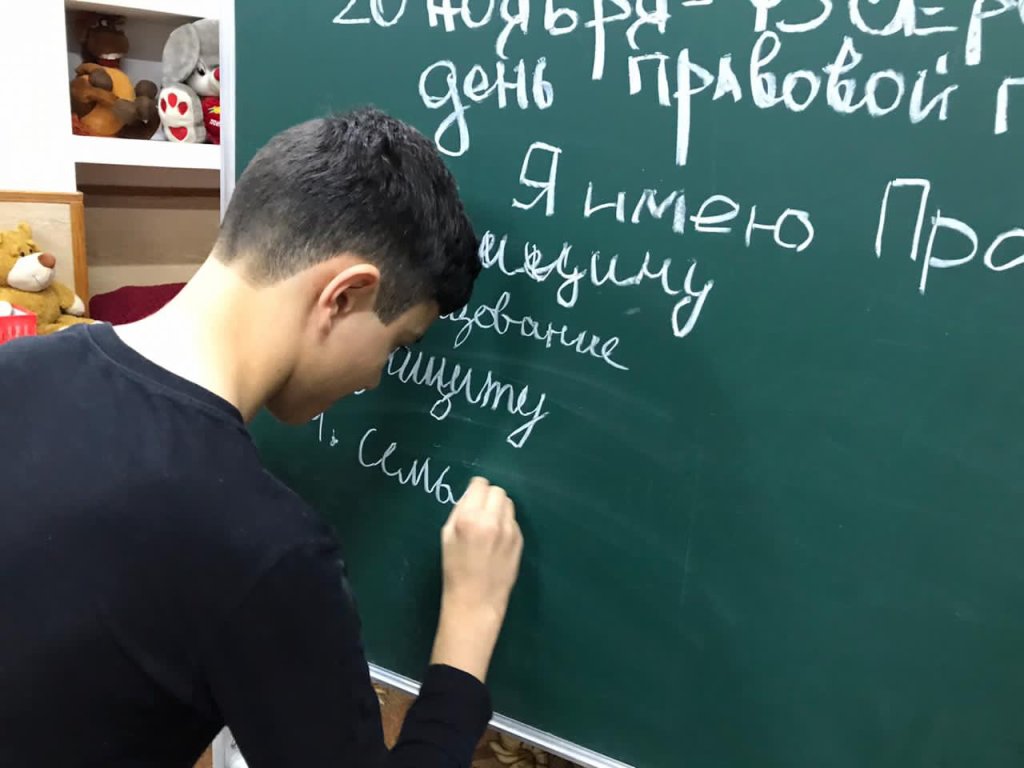 20 ноября - ВСЕРО
день правовой п
Я имею Пра
ицину
зование
ащиту
1. семь